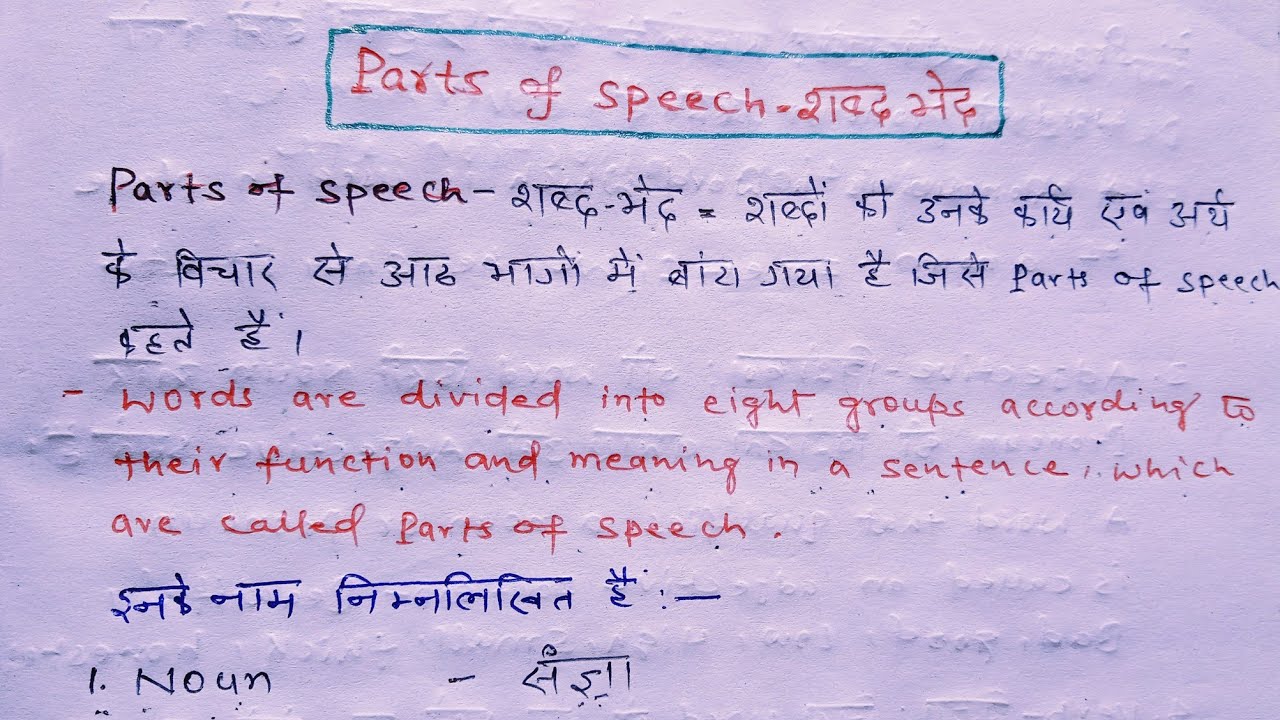 Parts of speech - शब्द भेद
Parts of speech - शब्द-भेद = शब्दों को उनके कार्य एवं अर्थ
के विचार से आठ भागों में बांटा गया है जिसे Parts of speech
कहते हैं।
- words are divided into eight groups according to
their function and meaning in a sentence, which
are called Parts of speech.
इनके नाम निम्नलिखित हैं :—
1. Noun - संज्ञा